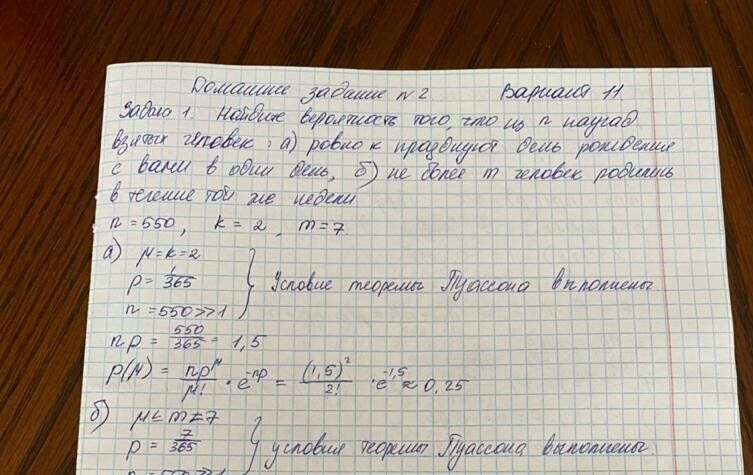 Домашнее задание №2 Вариант 11
Задача 1. Найдите вероятность того, что из n наугад
взятых человек: а) ровно к празднуют день рождения
с вами в один день, б) не более m человек родились
в течение той же недели
n = 550, k = 2, m = 7
а) μ = k = 2
p = 1/365 } Условие теоремы Пуассона выполнены.
n = 550 >> 1
np = 550/365 = 1,5
P(μ) = np^μ/μ! · e^-np = (1,5)^2/2! · e^-1,5 ≈ 0,25
б) μ ≤ m = 7
p = 7/365 } условия теоремы Пуассона выполнены.
n = 550 >> 1